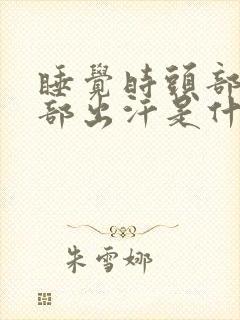 睡覺時頭部
部出汗是什
朱雪娜